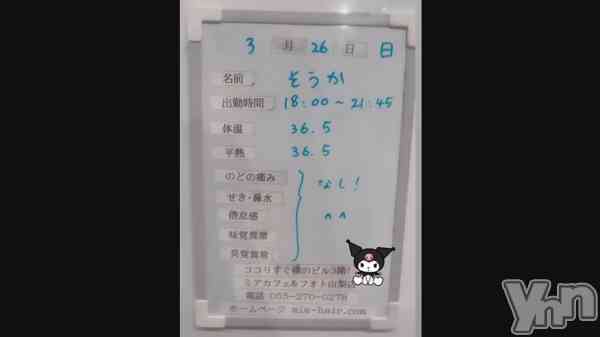 3 月 26 日 日
名前 そうか
出勤時間 18:00～21:45
体温 36.5
平熱 36.5
のどの痛み
せき・鼻水
倦怠感
味覚異常
臭覚異常
なし!
^^
ココリすぐ横のビル3階!
ミアカフェ&フォト山梨店
電話 055-270-0278
ホームページ mia-hair.com
yhn